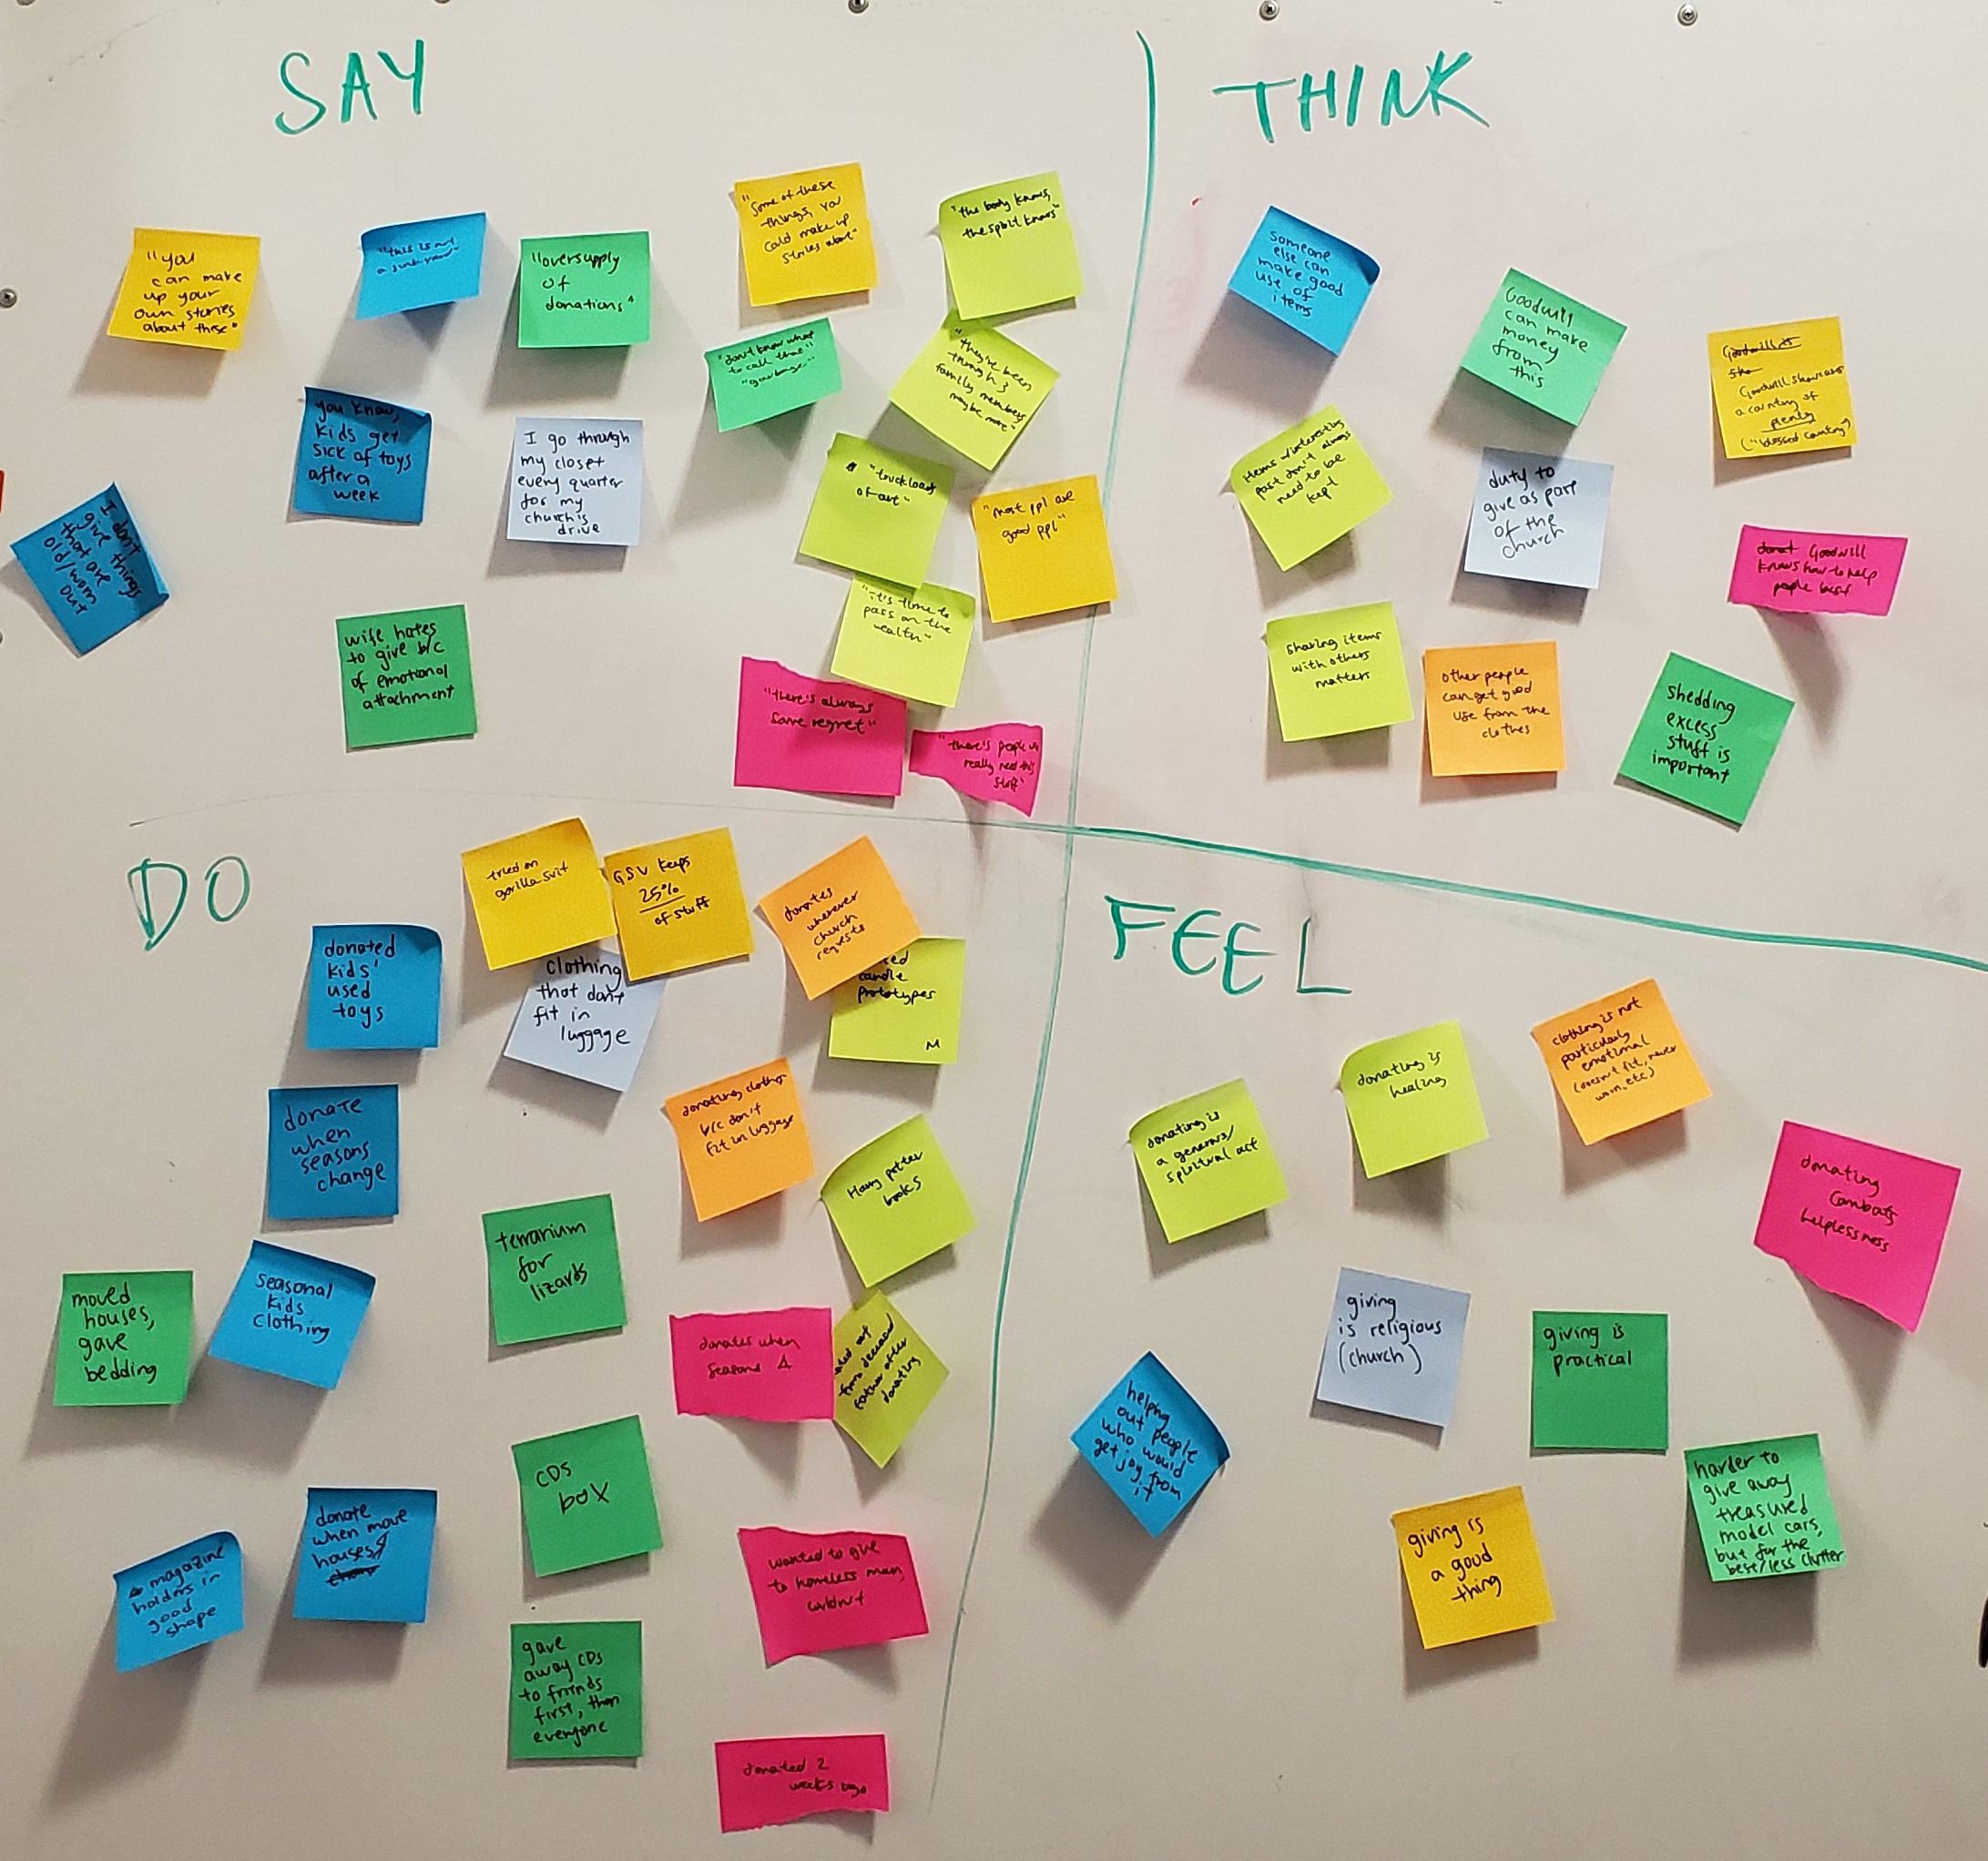 SAY
"you
can make
up your
own stories
about these"
"this is not
a junk yard"
"oversupply
of
donations"
"Some of these
things, you
could make up
stories about"
"the body knows,
the spirit knows"
"don't know what
to call that"
"garbage"
"they've been
through 3
family members
maybe more"
you know,
kids get
sick of toys
after a
week
I go through
my closet
every quarter
for my
church's
drive
"truckload
of art"
"most ppl are
good ppl"
I don't
give things
that are
old/worn
out
"it's time to
pass on the
wealth"
wife hates
to give b/c
of emotional
attachment
"there's always
some regret"
"there's people
really need this
stuff"
THINK
someone
else can
make good
use of
items
Goodwill
can make
money
from
this
Goodwill is
Goodwill showcases
a country of
plenty
("blessed country")
items w/interesting
past don't always
need to be
kept
duty to
give as part
of the
church
donat Goodwill
knows how to help
people best
sharing items
with others
matters
other people
can get good
use from the
clothes
shedding
excess
stuff is
important
DO
tried on
gorilla suit
GSV keeps
25%
of stuff
donates
wherever
church
requests
donated
kids'
used
toys
clothing
that don't
fit in
luggage
candle
prototypes
M
donate
when
seasons
change
donating clothes
b/c don't
fit in luggage
Harry potter
books
terrarium
for
lizards
moved
houses,
gave
bedding
seasonal
kids
clothing
donates when
seasons Δ
art
from deceased
father after
donating
CDs
box
magazine
holders in
good
shape
donate
when move
houses
wanted to give
to homeless man,
couldn't
gave
away CDs
to friends
first, then
everyone
donated 2
weeks ago
FEEL
donating is
a generous/
spiritual act
donating is
healing
clothing is not
particularly
emotional
(doesn't fit, never
worn, etc)
donating
combats
helplessness
giving
is religious
(church)
giving is
practical
helping
out people
who would
get joy from
it
giving is
a good
thing
harder to
give away
treasured
model cars,
but for the
best/less clutter